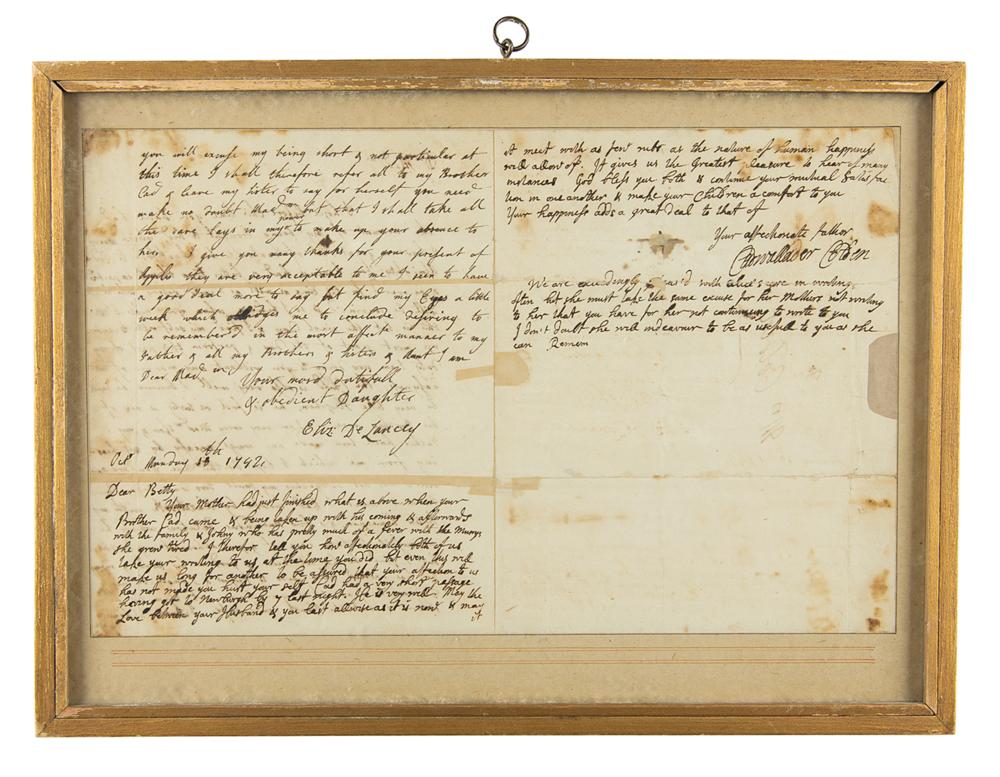 you will excuse my being short & not particular at
this time I shall therefore refer all to my Brother
Cad & leave my sister to say for herself you need
make no doubt but that I shall take all
the care lays in my power to make up your absence to
her I give you many thanks for your present of
Apples they are very acceptable to me I seem to have
a good deal more to say but find my Eyes a little
weak which obliges me to conclude desiring to
be remember'd in the most affte manner to my
Father & all my Brothers & sisters & Aunt I am
Dear Mad.m
Your most dutifull
& obedient Daughter
Eliz: DeLancey
Octr Munday th 1742
Dear Betty
Your Mother had just finished what is above when your
Brother Cad came & being taken up with his coming & afterwards
with the family & Johny who has pretty much of a fever with the Mumps
she grew tired I therefor tell you how affectionately both of us
take your writing to us at the time you did but even this will
make us long for another to be assured that your affection to us
has not made you hurt your self. Cad has a very short passage
having got to Newburgh by 7 last night. He is very well. May the
Love between your Husband & you last allwise as it is now & may
it
it meet with as few rubs as the nature of human happiness
will allow of. It gives us the Greatest pleasure to hear of many
instances God bless you both & continue your mutual Satisfac
tion in one another & make your Children a comfort to you
Your happiness adds a great deal to that of
Your affectionate father
Cadwallader Colden
We are exceedingly pleas'd with Alice's care in writing
often but she must take the same excuse for her Mothers not writing
to her that you have for her not continuing to write to you
I don't doubt she will indeavour to be as usefull to you as she
can